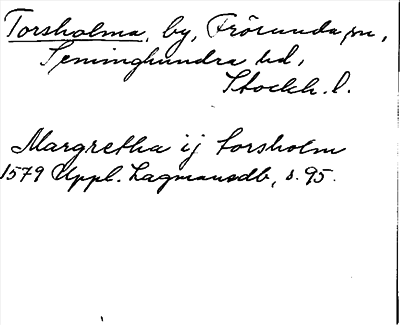 Torsholma, by, Frösunda sn,
Seminghundra hd,
Stockh. l.
Margretha ij torsholm
1579 Uppl. Lagmansdb, s. 95.